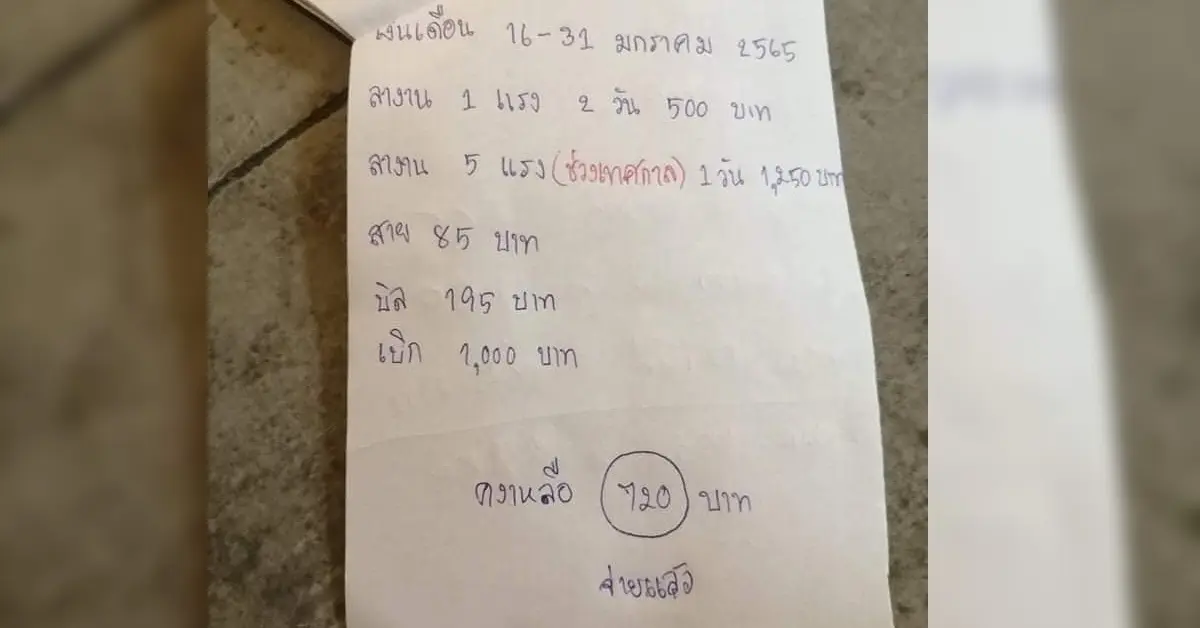 เงินเดือน 16-31 มกราคม 2565
ลางาน 1 แรง 2 วัน 500 บาท
ลางาน 5 แรง (ช่วงเทศกาล) 1 วัน 1,250 บาท
สาย 85 บาท
บิล 195 บาท
เบิก 1,000 บาท
คงเหลือ 720 บาท
จ่ายแล้ว